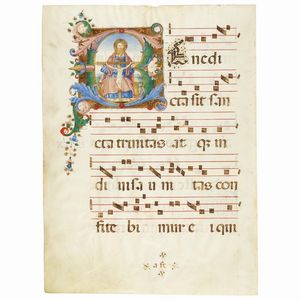 Enedi
cta sit san
cta trinitas at q; in
diuisa unitas con
fite bi mur e i qui